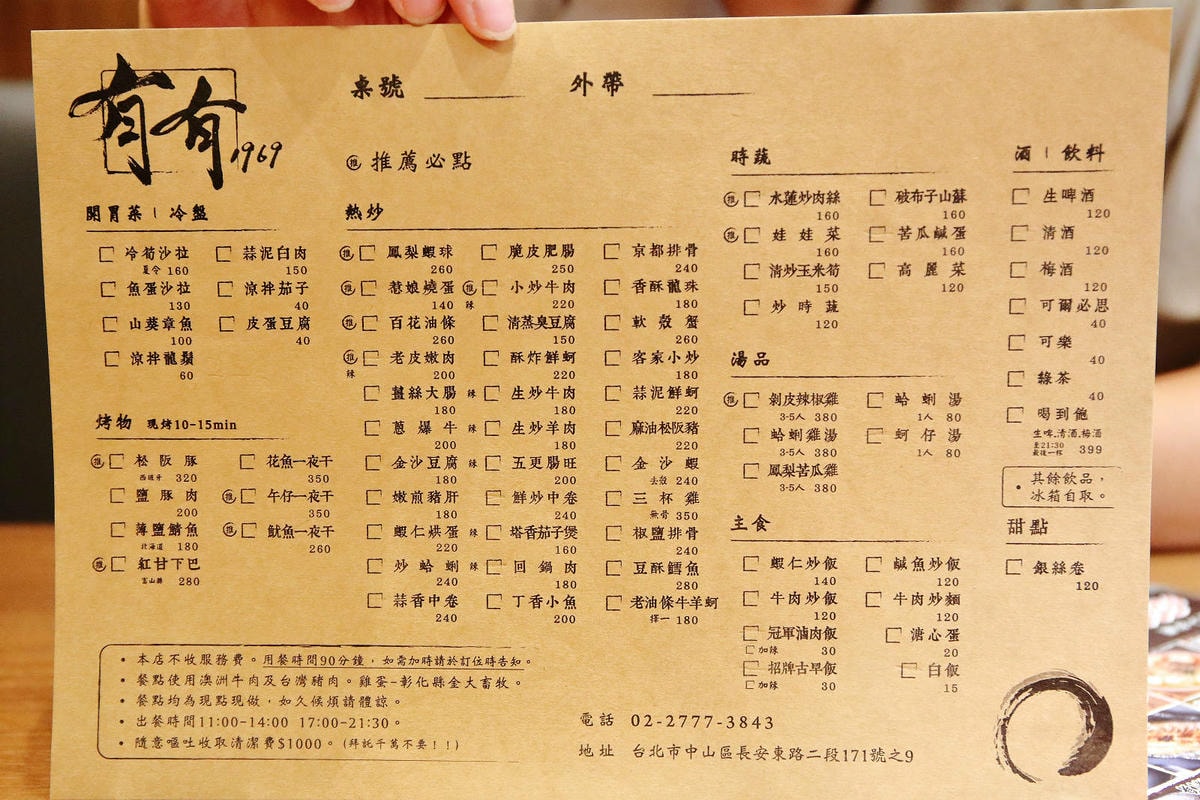 有有1969
桌號
外帶
推 推薦必點
開胃菜 | 冷盤
冷筍沙拉
夏令 160
蒜泥白肉
150
魚蛋沙拉
130
涼拌茄子
40
山葵章魚
100
皮蛋豆腐
40
涼拌龍鬚
60
烤物 現烤10-15min
推 松阪豚
西班牙 320
花魚一夜干
350
鹽豚肉
200
推 午仔一夜干
350
薄鹽鯖魚
北海道 180
推 魷魚一夜干
260
推 紅甘下巴
富山縣 280
熱炒
推 鳳梨蝦球
260
脆皮肥腸
250
京都排骨
240
推 惹娘燒蛋
140
推 小炒牛肉
辣 220
香酥龍珠
180
推 百花油條
260
清蒸臭豆腐
150
軟殼蟹
260
推 老皮嫩肉
辣 200
酥炸鮮蚵
220
客家小炒
180
薑絲大腸
180
辣 生炒牛肉
180
蒜泥鮮蚵
220
蔥爆牛
200
辣 生炒羊肉
180
麻油松阪豬
220
金沙豆腐
180
辣 五更腸旺
200
金沙蝦
去殼 240
嫩煎豬肝
180
鮮炒中卷
240
三杯雞
無骨 350
蝦仁烘蛋
220
辣 塔香茄子煲
160
椒鹽排骨
240
炒蛤蜊
240
辣 回鍋肉
180
豆酥鱈魚
280
蒜香中卷
240
丁香小魚
200
老油條牛羊蚵
擇一 180
時蔬
推 水蓮炒肉絲
160
破布子山蘇
160
推 娃娃菜
160
苦瓜鹹蛋
160
清炒玉米筍
150
高麗菜
120
炒時蔬
120
湯品
推 剝皮辣椒雞
3-5人 380
蛤蜊湯
1人 80
蛤蜊雞湯
3-5人 380
蚵仔湯
1人 80
鳳梨苦瓜雞
3-5人 380
主食
蝦仁炒飯
140
鹹魚炒飯
120
牛肉炒飯
120
牛肉炒麵
120
冠軍滷肉飯
加辣 30
溏心蛋
20
招牌古早飯
加辣 30
白飯
15
酒 | 飲料
生啤酒
120
清酒
120
梅酒
120
可爾必思
40
可樂
40
綠茶
40
喝到飽
生啤.清酒.梅酒
至21:30
最後一杯 399
• 其餘飲品，
冰箱自取。
甜點
銀絲卷
120
• 本店不收服務費。用餐時間90分鐘，如需加時請於訂位時告知。
• 餐點使用澳洲牛肉及台灣豬肉。雞蛋-彰化縣金大畜牧。
• 餐點均為現點現做，如久候煩請體諒。
• 出餐時間11:00-14:00 17:00-21:30。
• 隨意嘔吐收取清潔費$1000。(拜託千萬不要！！)
電話 02-2777-3843
地址 台北市中山區長安東路二段171號之9